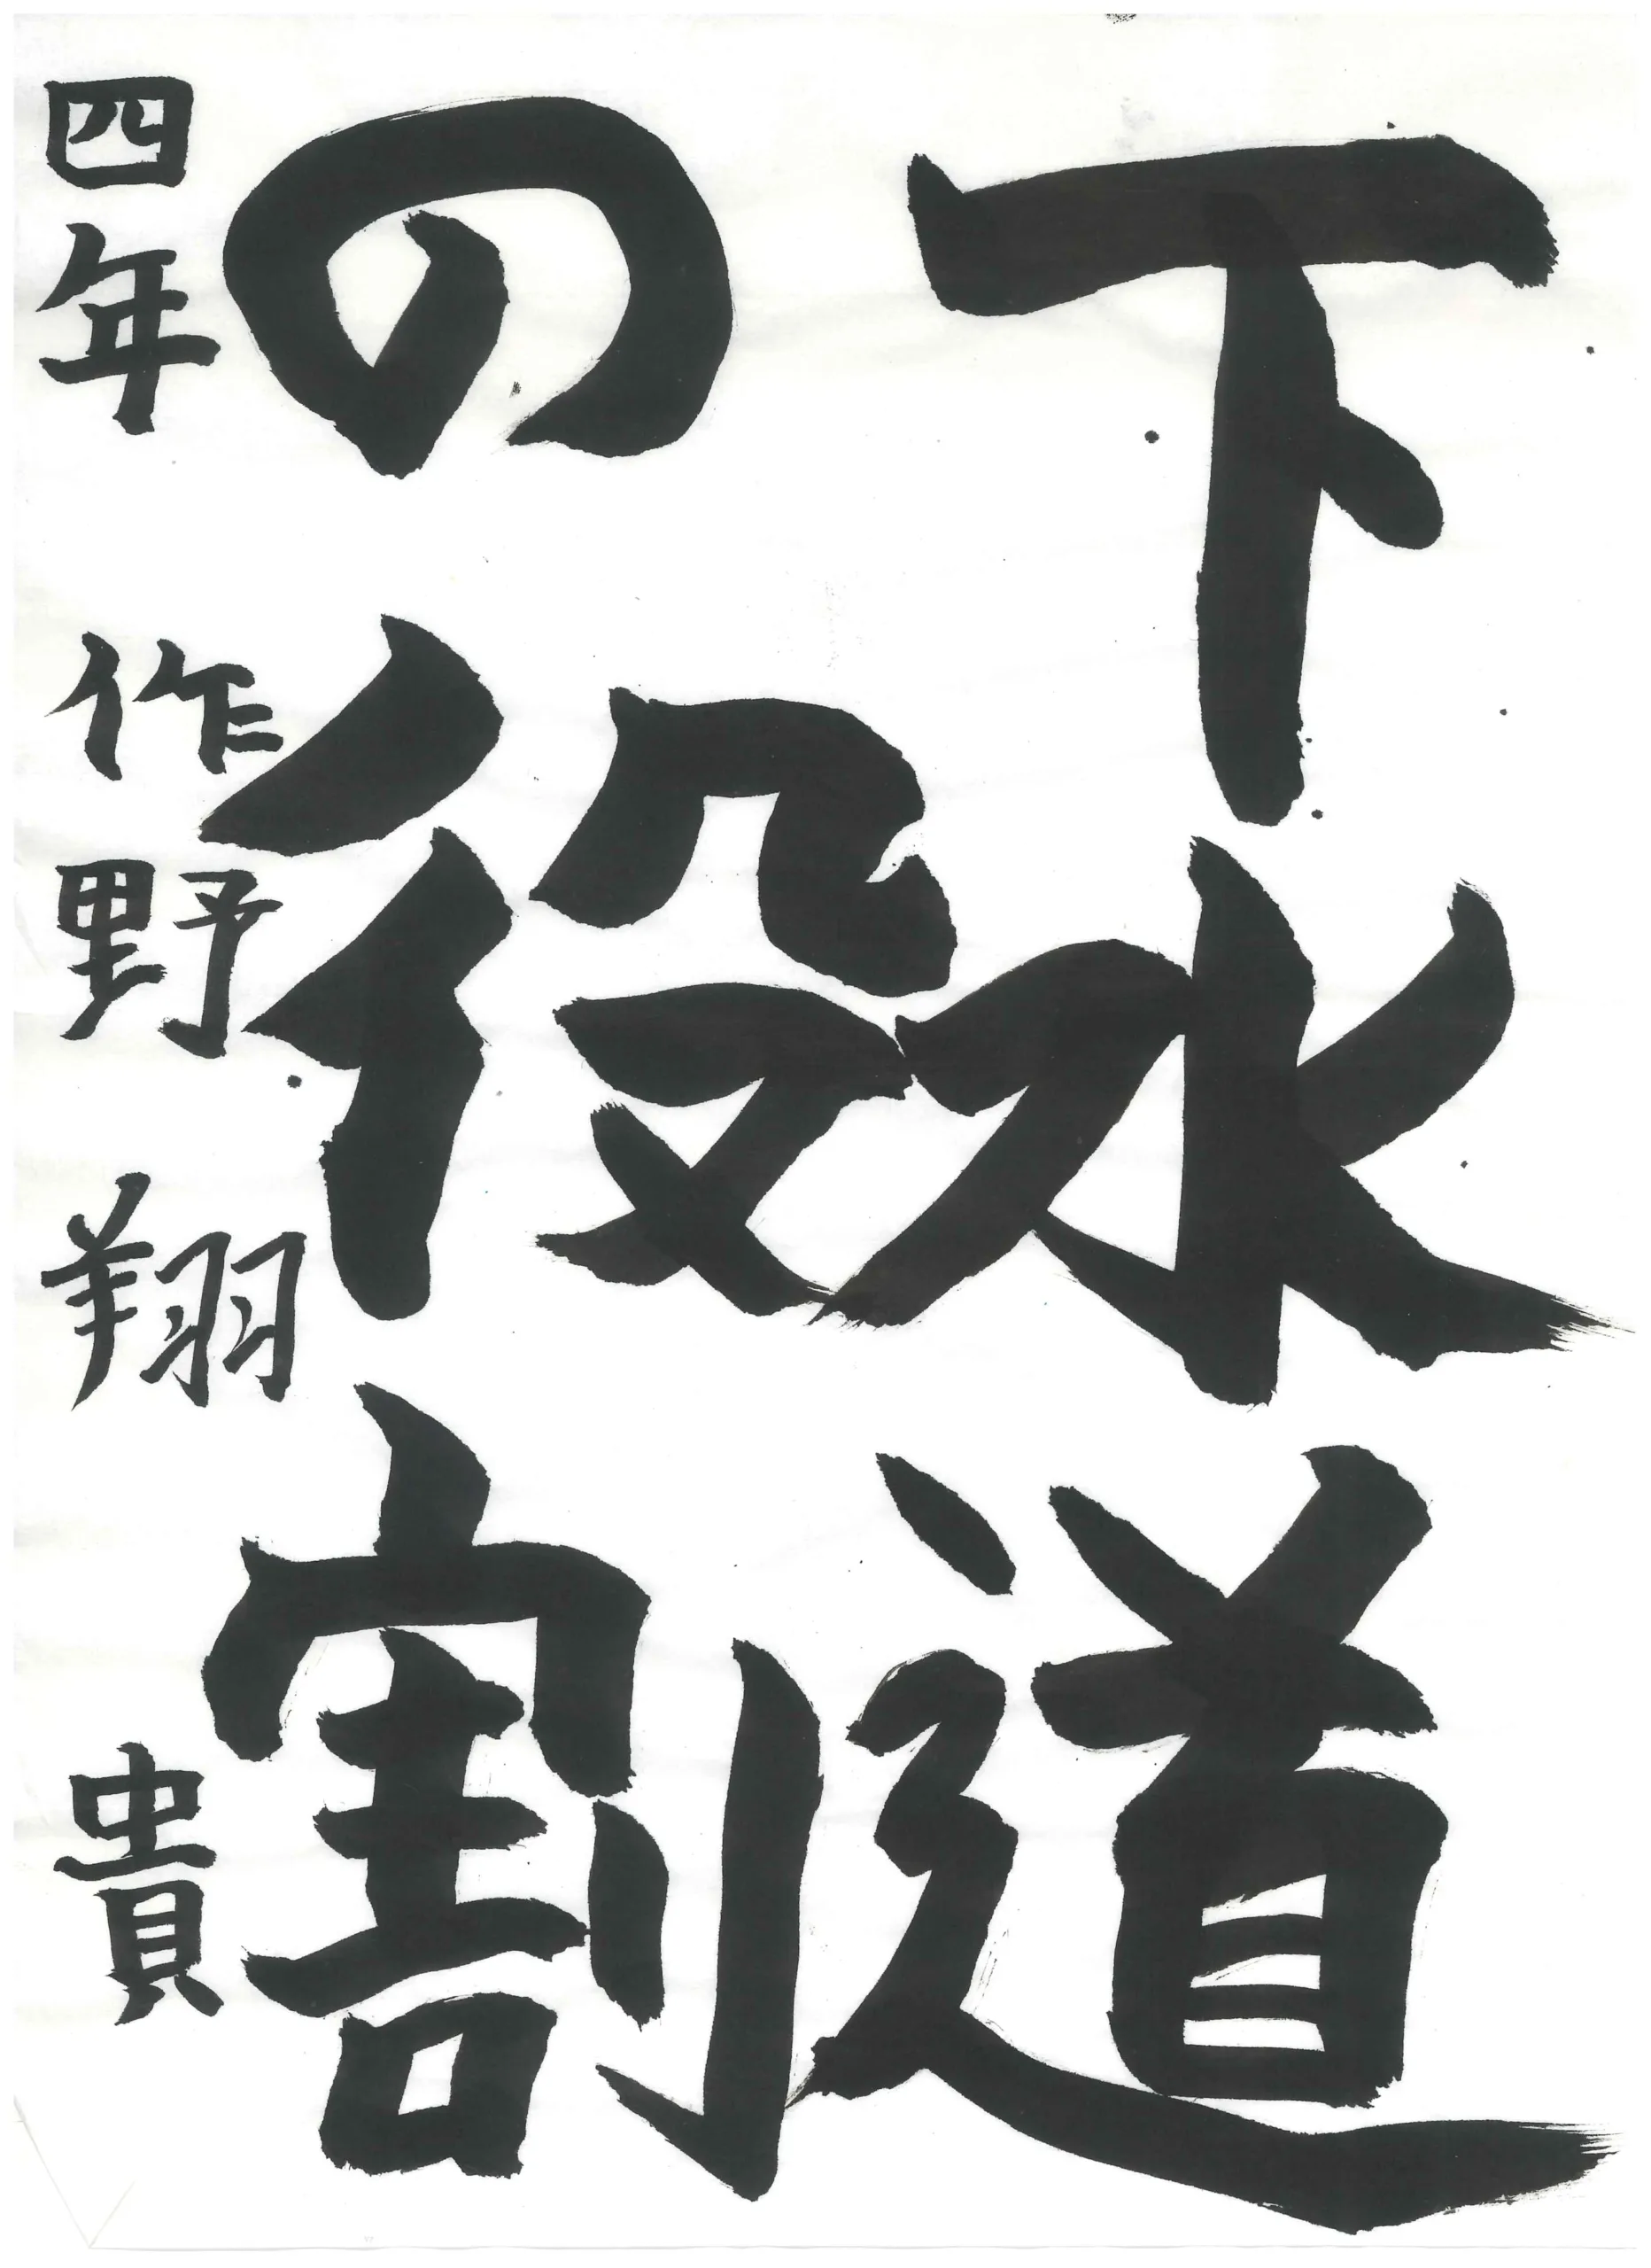 下水道
の役割
四年 作野 翔貴